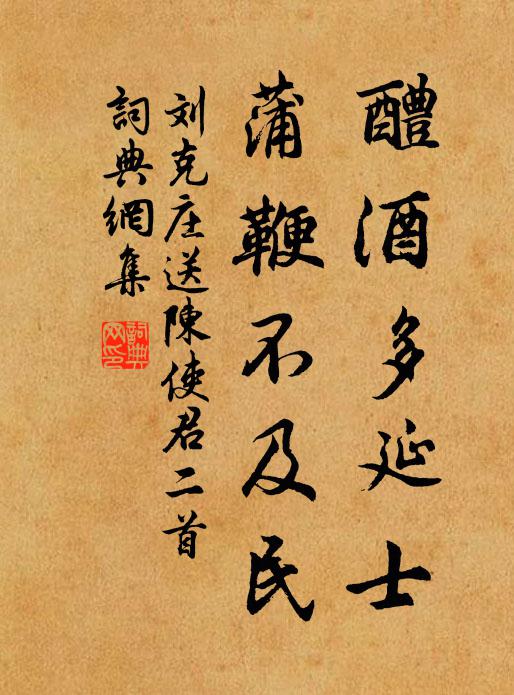 醴酒多延士
蒲鞭不及民
刘克庄送陳使君二首
詞典網集
詞典网印